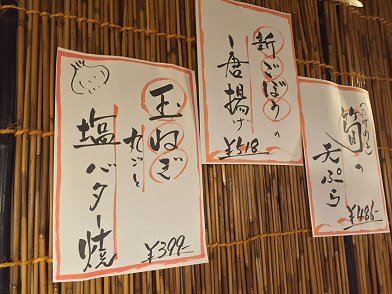 玉ねぎ
丸ごと
塩バター焼
¥399-
新ごぼうの
唐揚げ
¥518
(たけのこ)
筍の
天ぷら
¥486-